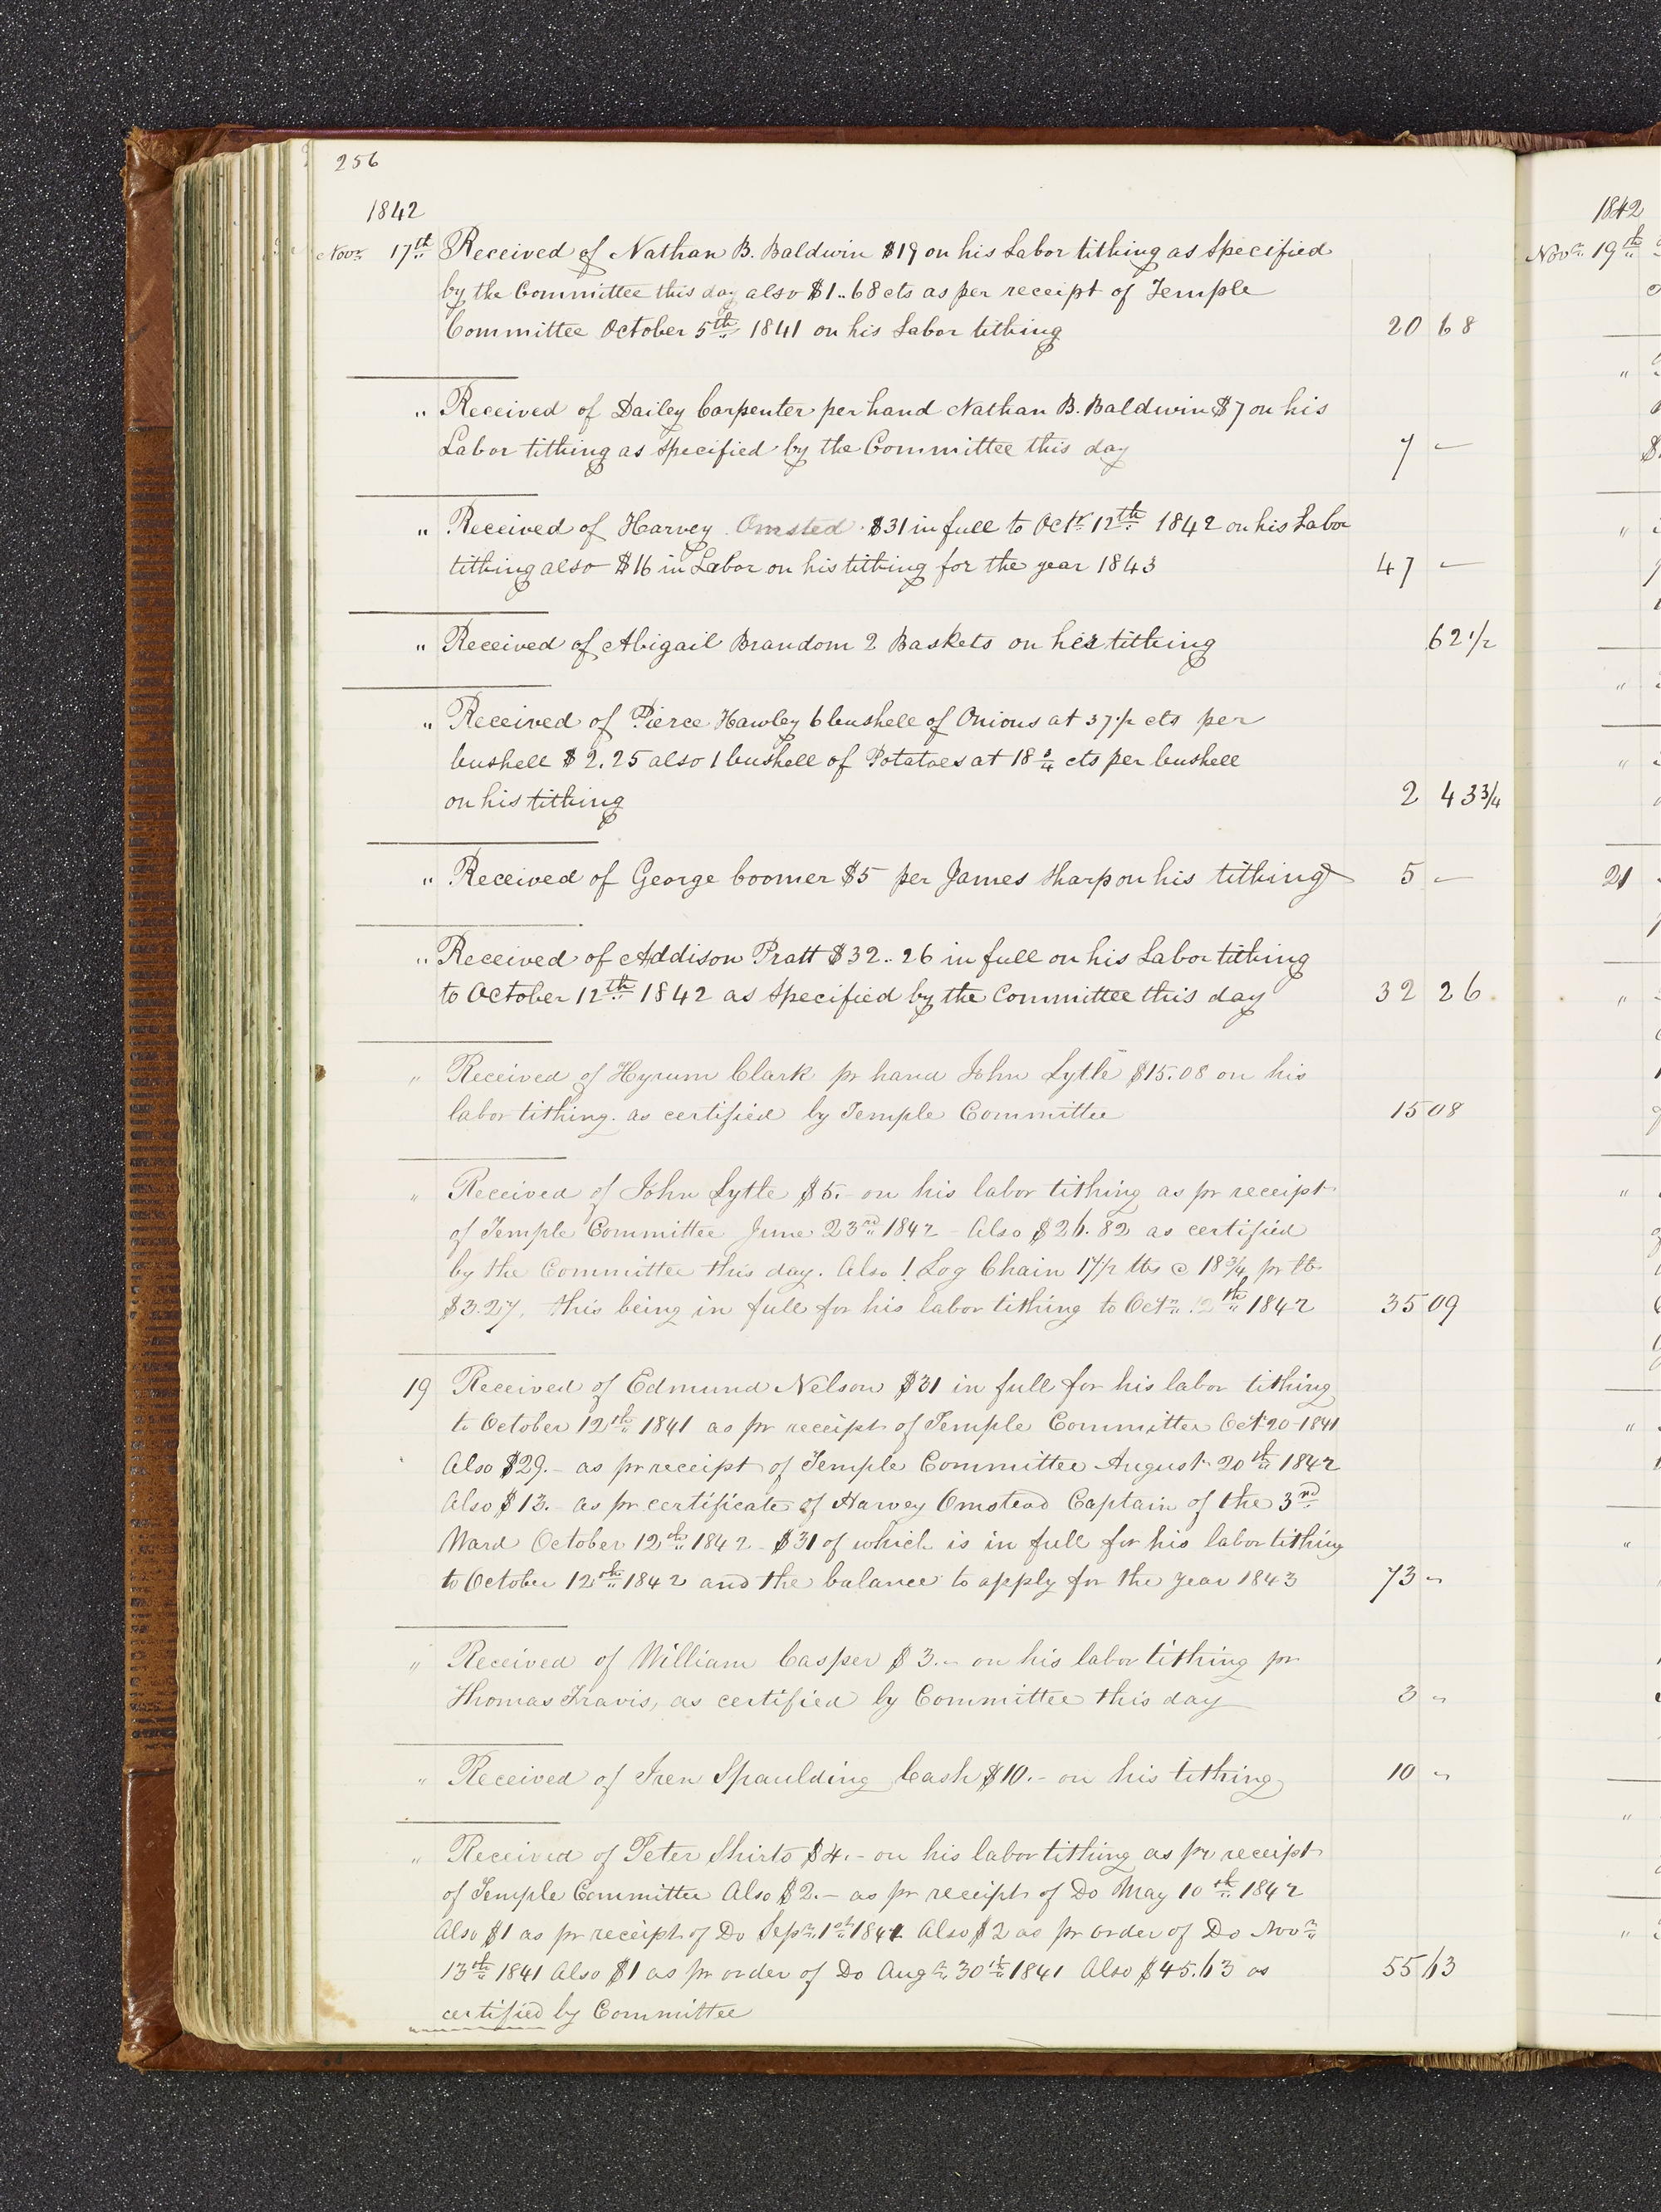 256
1842
Novr. 17th Received of Nathan B. Baldwin $19 on his Labor tithing as specified
by the Committee this day also $1..68 cts as per receipt of Temple
Committee October 5th 1841 on his Labor tithing 20 68
" Received of Dailey Carpenter per hand Nathan B. Baldwin $7 on his
Labor tithing as specified by the Committee this day 7 —
" Received of Harvey Omsted $31 in full to Octr 12th 1842 on his Labor
tithing also $16 in Labor on his tithing for the year 1843 47 —
" Received of Abigail Brandom 2 Baskets on her tithing 62 1/2
" Received of Pierce Hawley 6 bushell of Onions at 37 1/2 cts per
bushell $2.25 also 1 bushell of Potatoes at 18 3/4 cts per bushell
on his tithing 2 43 3/4
" Received of George boomer $5 per James Sharp on his tithing 5 —
" Received of Addison Pratt $32..26 in full on his Labor tithing
to October 12th 1842 as specified by the Committee this day 32 26
" Received of Hyrum Clark pr hand John Lytle $15.08 on his
labor tithing. as certified by Temple Committee 15 08
" Received of John Lytle $5.- on his labor tithing as pr receipt
of Temple Committee June 23rd 1842 - Also $26.82 as certified
by the Committee this day. Also 1 Log Chain 17 1/2 lbs @ 18 3/4 pr lb
$3.27, this being in full for his labor tithing to Octr. 12th 1842 35 09
19 Received of Edmund Nelson $31 in full for his labor tithing
to October 12th 1841 as pr receipt of Temple Committee Oct 20-1841
Also $29.- as pr receipt of Temple Committee August 20th 1842
Also $13.- as pr certificate of Harvey Omstead Captain of the 3rd
Ward October 12th 1842 - $31 of which is in full for his labor tithing
to October 12th 1842 and the balance to apply for the year 1843 73 -
" Received of William Casper $3.- on his labor tithing pr
Thomas Travis, as certified by Committee this day 3 -
" Received of Iren Spaulding Cash $10.- on his tithing 10 -
" Received of Peter Shirts $4.- on his labor tithing as pr receipt
of Temple Committee Also $2.- as pr receipt of Do May 10th 1842
Also $1 as pr receipt of Do Sepr. 1st 1841 Also $2 as pr order of Do Novr.
13th 1841 Also $1 as pr order of Do Augt. 30th 1841 Also $45.63 as 55 63
certified by Committee
1842
Novr. 19th
"
"
"
"
21
"
"
"
"
"
"